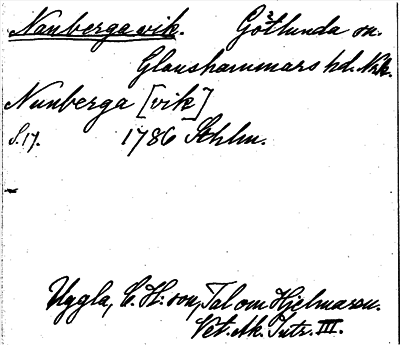 Nunberga vik. Götlunda sn.
Glanshammars hd. Nrk.
Nunberga [vik]
S. 17. 1786 Sthlm.
Uggla, C. H:son, Tal om Hjelmaren.
Vet. Ak. Intr. III.